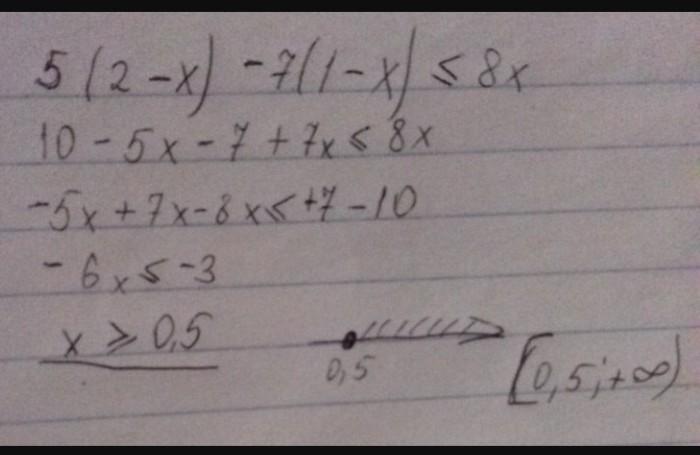 5(2-x) -7(1-x) ≤ 8x
10 - 5x - 7 + 7x ≤ 8x
-5x + 7x - 8x ≤ +7 - 10
-6x ≤ -3
x ≥ 0,5
0,5
[0,5;+∞)